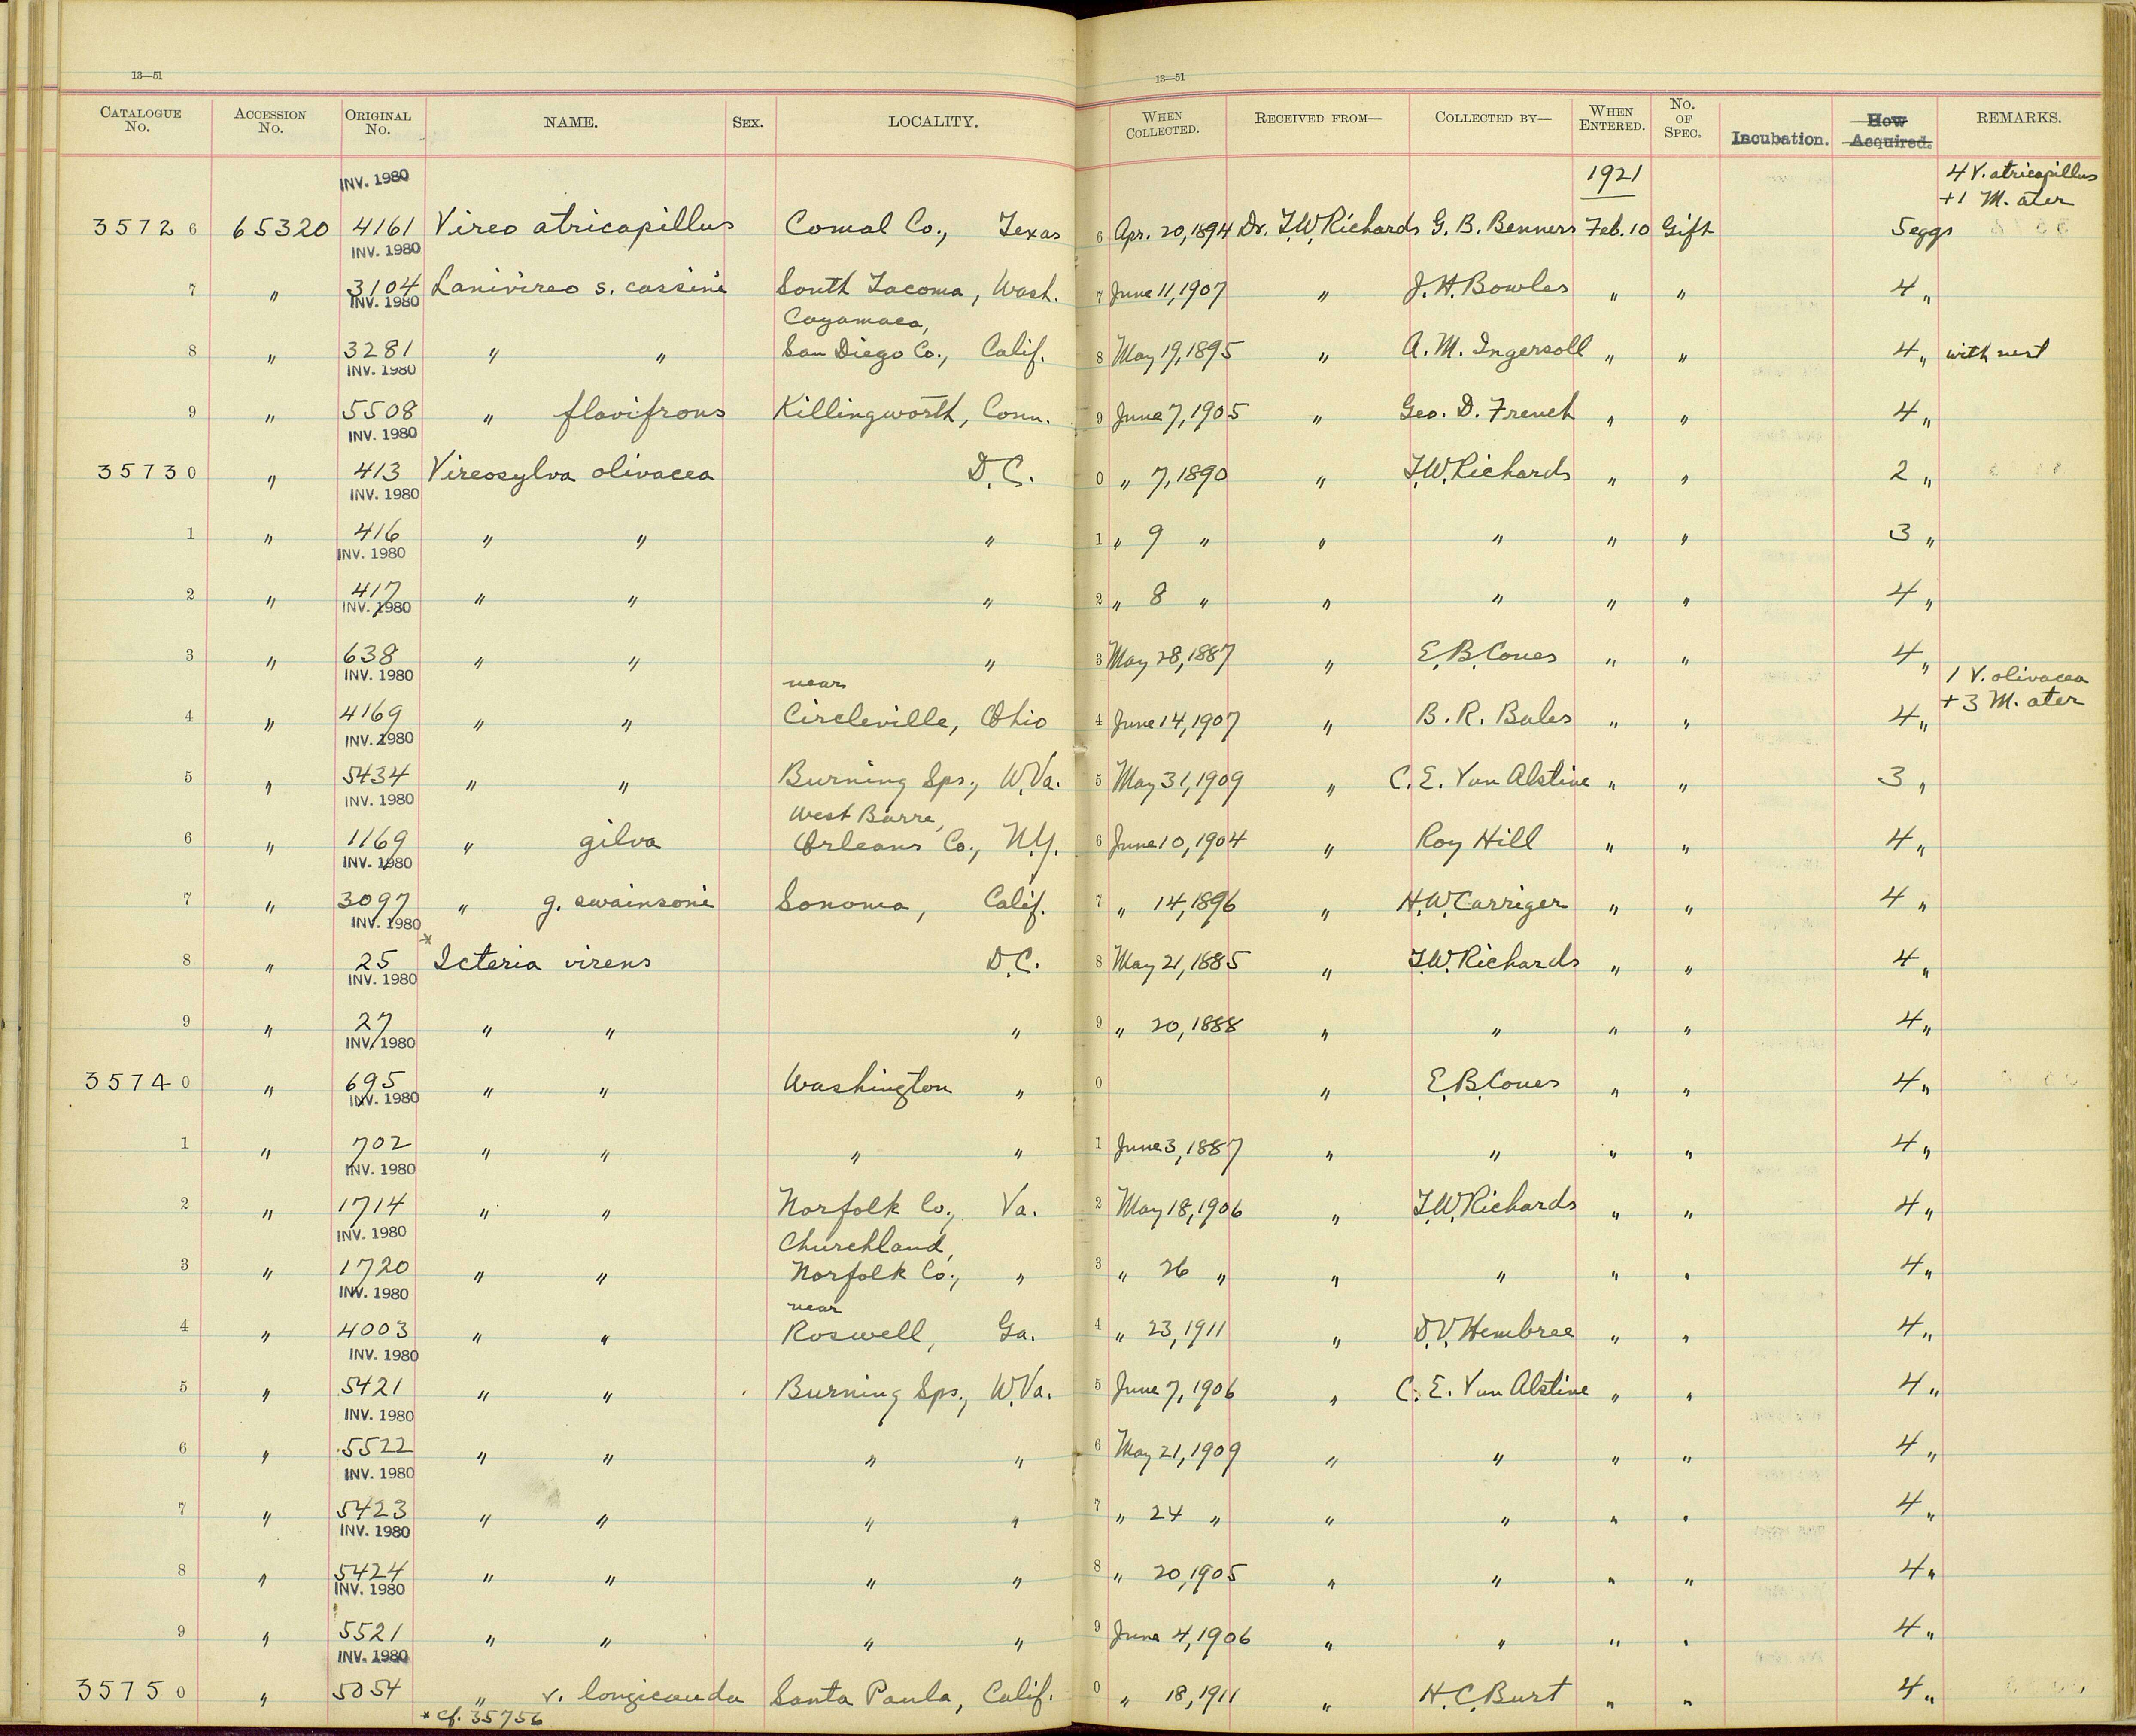 13—51 13—51
CATALOGUE No. ACCESSION No. ORIGINAL No. NAME. SEX. LOCALITY. WHEN COLLECTED. RECEIVED FROM— COLLECTED BY— WHEN ENTERED. No. OF SPEC. Incubation. How Acquired. REMARKS.
INV. 1980 1921 4 V. atricapillus
+1 M. ater
35726 65320 4161 Vireo atricapillus Comal Co., Texas 6 Apr. 20, 1894 Dr. T.W. Richards G. B. Benners Feb. 10 Gift 5 eggs
INV. 1980
7 " 3104 Lanivireo s. cassini South Tacoma, Wash. 7 June 11, 1907 " J. H. Bowles " " 4 "
INV. 1980
Cuyamaca,
8 " 3281 " " San Diego Co., Calif. 8 May 19, 1895 " A. M. Ingersoll " " 4 " with nest
INV. 1980
9 " 5508 " flavifrons Killingworth, Conn. 9 June 7, 1905 " Geo. D. French " " 4 "
INV. 1980
35730 " 413 Vireosylva olivacea D.C. 0 " 7, 1890 " T.W. Richards " " 2 "
INV. 1980
1 " 416 " " " 1 " 9 " " " " " 3 "
INV. 1980
2 " 417 " " " 2 " 8 " " " " " 4 "
INV. 1980
3 " 638 " " " 3 May 28, 1887 " E.B. Coues " " 4 "
INV. 1980
near 1 V. olivacea
+ 3 M. ater
4 " 4169 " " Circleville, Ohio 4 June 14, 1907 " B. R. Bales " " 4 "
INV. 1980
5 " 5434 " " Burning Sps., W.Va. 5 May 31, 1909 " C. E. Van Alstine " " 3 "
INV. 1980
West Barre,
6 " 1169 " gilva Orleans Co., N.Y. 6 June 10, 1904 " Roy Hill " " 4 "
INV. 1980
7 " 3097 " g. swainsoni Sonoma, Calif. 7 " 14, 1896 " H.W. Carriger " " 4 "
INV. 1980
8 " 25 * Icteria virens D.C. 8 May 21, 1885 " T.W. Richards " " 4 "
INV. 1980
9 " 27 " " " 9 " 20, 1888 " " " " 4 "
INV. 1980
35740 " 695 " " Washington " 0 " E.B. Coues " " 4 "
INV. 1980
1 " 702 " " " " 1 June 3, 1887 " " " " 4 "
INV. 1980
2 " 1714 " " Norfolk Co., Va. 2 May 18, 1906 " T.W. Richards " " 4 "
INV. 1980
Churchland,
3 " 1720 " " Norfolk Co., " 3 " 26 " " " " " 4 "
INV. 1980
near
4 " 4003 " " Roswell, Ga. 4 " 23, 1911 " D.V. Hembree " " 4 "
INV. 1980
5 " 5421 " " Burning Sps., W.Va. 5 June 7, 1906 " C. E. Van Alstine " " 4 "
INV. 1980
6 " 5522 " " " " 6 May 21, 1909 " " " " 4 "
INV. 1980
7 " 5423 " " " " 7 " 24 " " " " " 4 "
INV. 1980
8 " 5424 " " " " 8 " 20, 1905 " " " " 4 "
INV. 1980
9 " 5521 " " " " 9 June 4, 1906 " " " " 4 "
INV. 1980
35750 " 5054 " v. longicauda Santa Paula, Calif. 0 " 18, 1911 " H.C. Burt " " 4 "
* cf. 35756